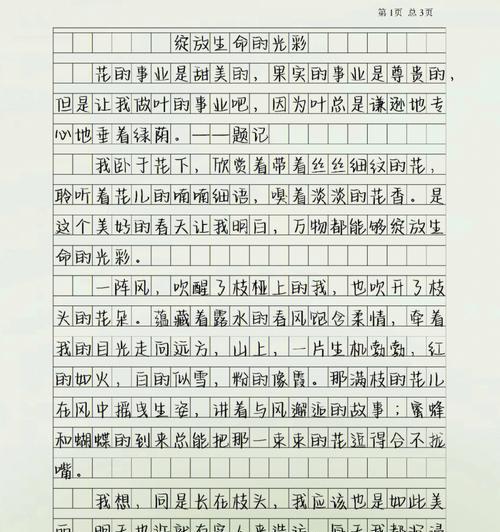 第1页 总3页
绽放生命的光彩
花的事业是甜美的,果实的事业是尊贵的,
但是让我做叶的事业吧,因为叶总是谦逊地专
心地垂着绿荫。——题记
我卧于花下,欣赏着带着丝丝细纹的花,
聆听着花儿的喃喃细语,嗅着淡淡的花香。是
这个美好的春天让我明白,万物都能够绽放生
命的光彩。
一阵风,吹醒了枝桠上的我,也吹开了枝
头的花朵。蕴藏着露水的春风饱含柔情,牵着
我的目光走向远方,山上,一片生机勃勃,红
的如火,白的似雪,粉的像霞。那满枝的花儿
在风中摇曳生姿,讲着与风邂逅的故事;蜜蜂
和蝴蝶的到来总能把那一束束的花逗得合不拢
嘴。
我想,同是长在枝头,我应该也是如此美